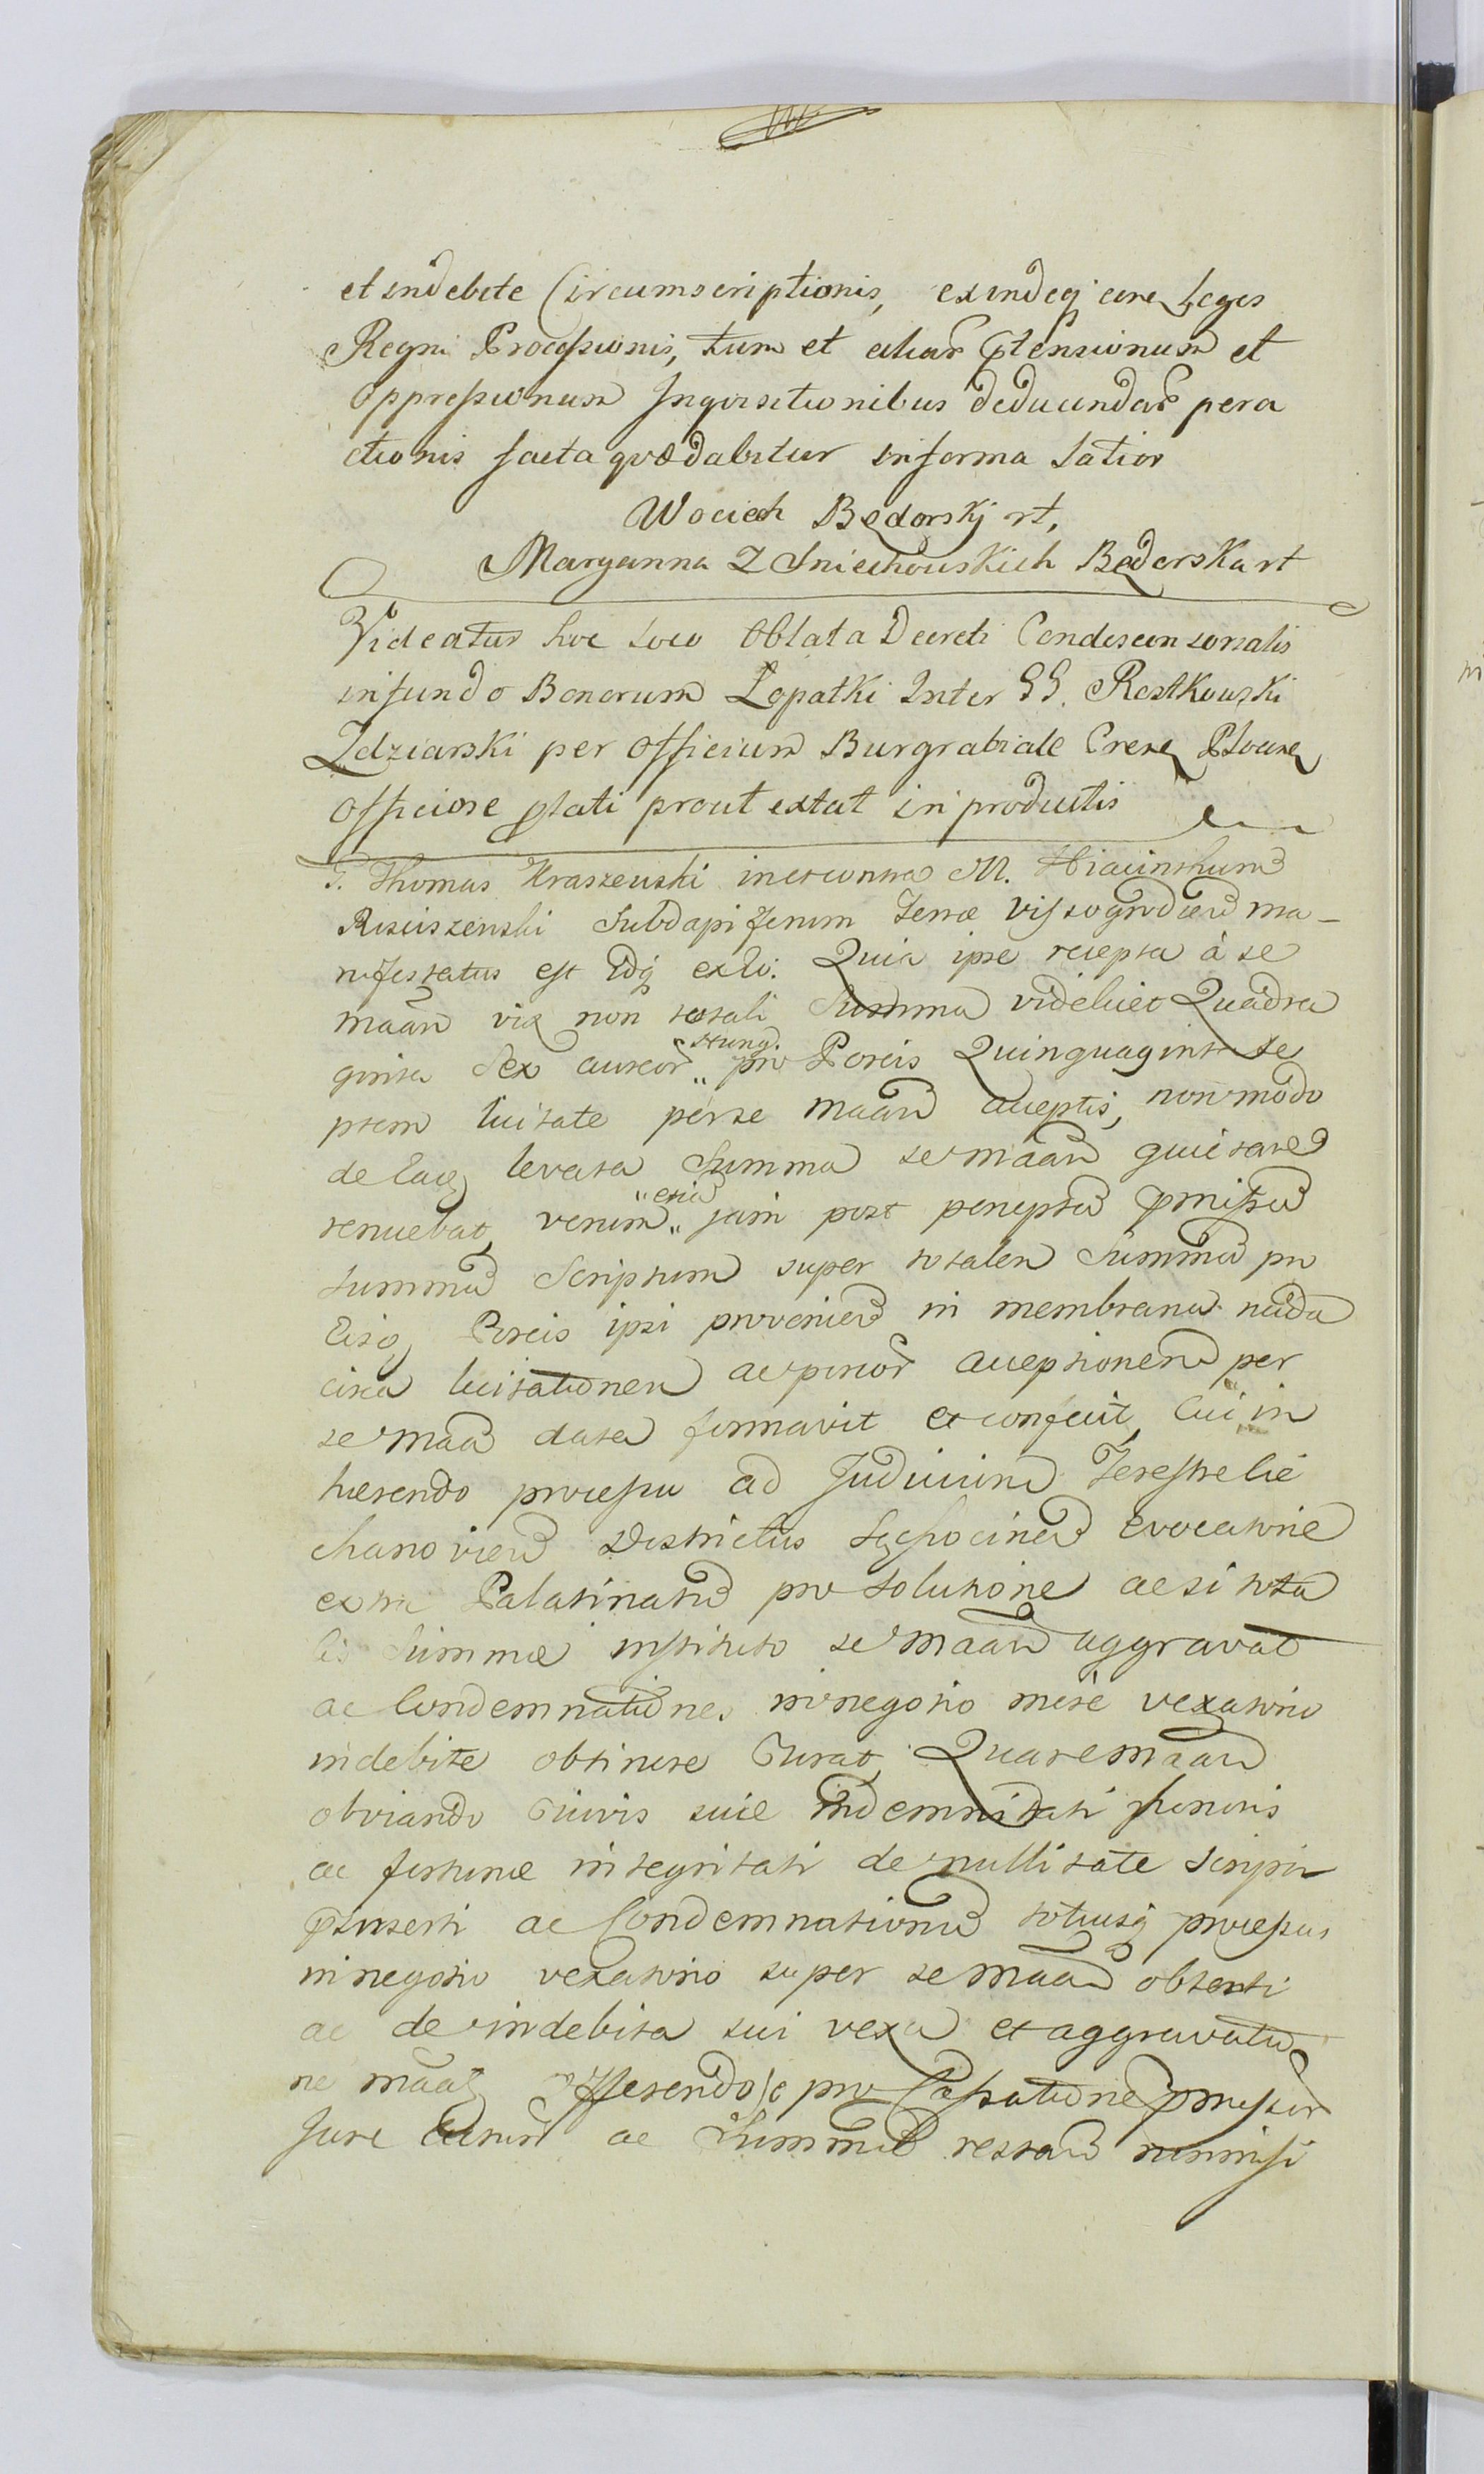 et indebite Circumscriptionis, exindeq cire Leges
Regni Processionis, tum et aliar ptensionum et
oppressionum Inquisitionibus deducendar pera
ctionis facta quæ dabitur in forma latior
Wociech Będorskj rt,
Maryanna Z Sniechowskich Będorska rt
Videatur hoc loco Oblata Decreti Condescensorialis
in fundo Bonorum Łopatki Inter GG. Rostkowski
Zdziarski per officium Burgrabiale Crens Plocens
officiose plati prout extat in productis
G. Thomas Kraszewski in et contra M. Hiacinthum
Rusciszewski Subdapiferum Terræ Vissogrodien ma-
nifestatus est idq exlo: Quia ipse recepta à se
maan vix non totali Summa videlicet Quadra
ginta Sex aureor hung. pro Porcis Quinquaginta se
ptem licitate per se maan acceptis, non modo
de eaq levata Summa se maan quietare
renuebat, verum etia jam post perceptã pmissã
summã Scriptum super totalem Summã pro
Eisq Porcis ipsi provenien in membrana nuda
circa licitationem ac porcor acceptionem per
se maan data formavit et confecit, cui in
herendo processu ad Judicium Terestre Cie
chanovien Districtus Sąchocinen evocatorie
extra Palatinatũ pro solutione ac si tota
lis Summæ instituto se maan aggravat
ac Condemnationes in negotio mere vexatorio
indebite obtinere Curat, Quare maan
obviando Juris suæ indemnitati honoris
ac fortunæ integritati de nullitate Scripti
pinserti ac Condemnationũ totiusq processus
in negotio vexatorio super se maan obtenti
ac de indebita sui vexa et aggravatio
ne maat offerendo se pro Cassatione pmissor
Jure acturũ ac Summã restan nonnisi